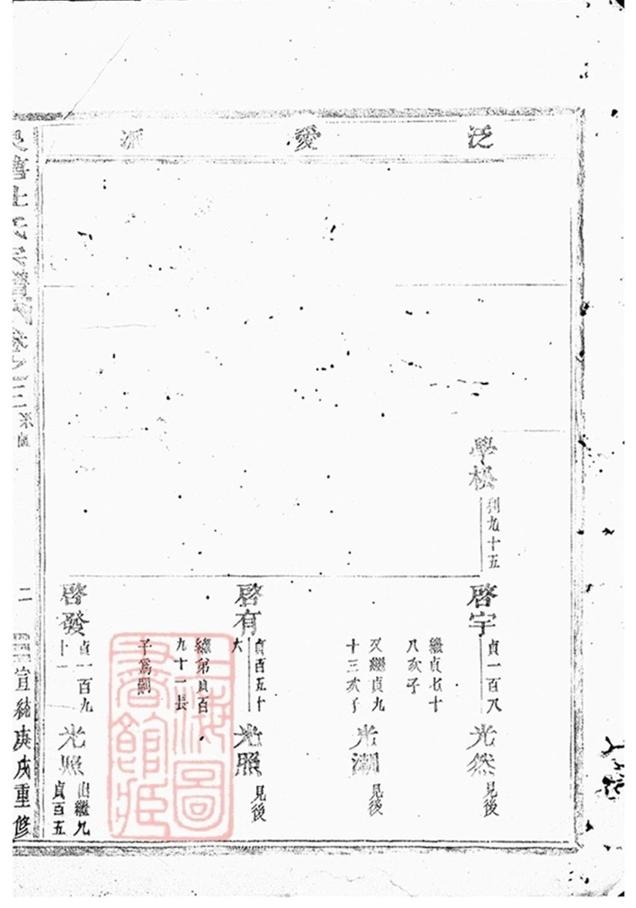 泛愛派
學松
利九十五
啓宇
貞一百八
繼貞七十
八次子
光然
見後
又繼貞九
十三次子
光潮
見後
啓有
貞百五十
六
繼弟貞百
九十一長
子為嗣
光照
見後
啓發
貞一百九
十一
光照
出繼九
貞百五
氏宗譜
卷之三
二
宣統庚戌重修
上海圖
書館藏